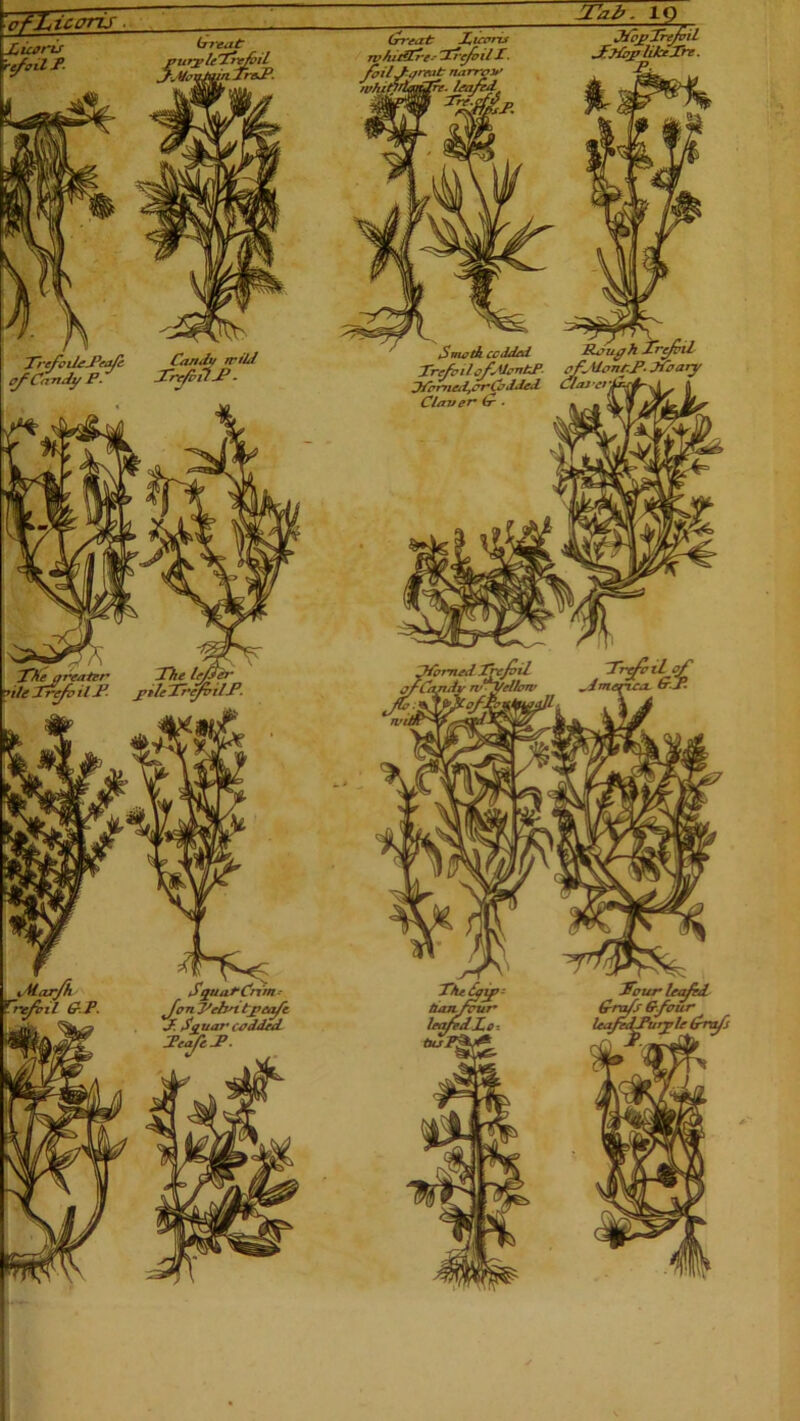 of Licoris .
Tab. 19
Licoris
refoil P.
Great
purple Trefoil
J. Mountain Tre.P.
Great Licoris
white Tre- Trefoil I.
foil J. great narrow
leafed
Hop Trefoil
J. Hop like Tre.
P.
Trefoile Pease
of Candy P.
Candy wild
Trefoil P.
Smoth codded
Trefoil of Mont.P.
Horned, or Codded
Claver G .
Rough Trefoil
of Mont.P. Hoary
Claver
The greater
pile Trefoil P.
The lesser
pile Trefoil P.
Horned Trefoil
of Candy w. Yellow
Trefoil of
America G.P.
Marsh
Trefoil G.P.
Squar Crim-
son Velvit pease
J. Squar codded
Pease P.
The Egip-
tian four
leafed Lo-
tus P.
Four leafed
Grass & four
leafed Purple Grass
P.